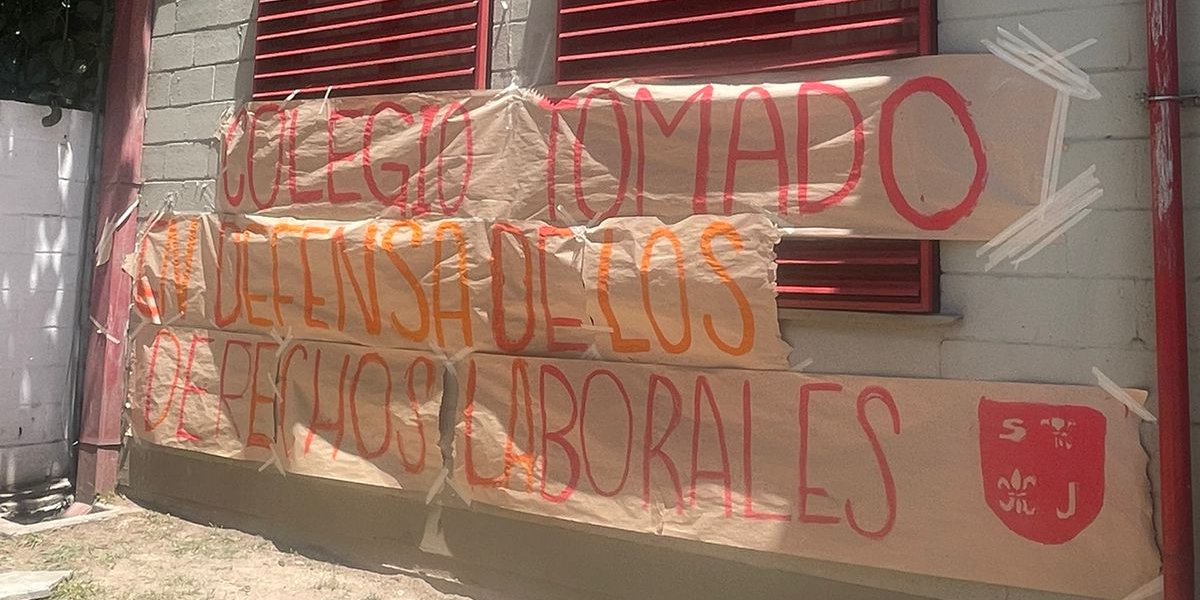 COLEGIO TOMADO
EN DEFENSA DE LOS
DERECHOS LABORALES
S
J